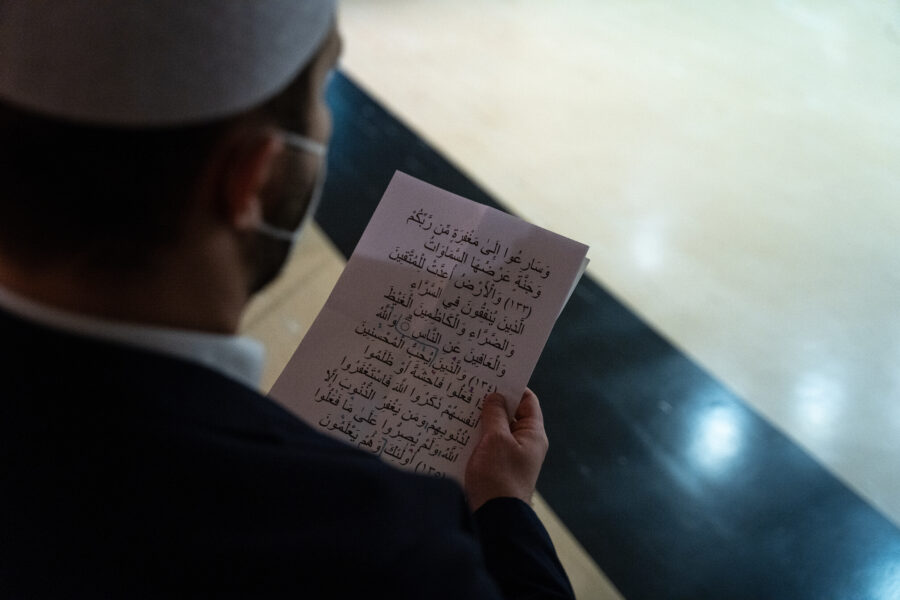 وَسَارِعُوا إِلَىٰ مَغْفِرَةٍ مِّن رَّبِّكُمْ
وَجَنَّةٍ عَرْضُهَا السَّمَاوَاتُ
وَالْأَرْضُ أُعِدَّتْ لِلْمُتَّقِينَ (١٣٣)
الَّذِينَ يُنفِقُونَ فِي السَّرَّاءِ
وَالضَّرَّاءِ وَالْكَاظِمِينَ الْغَيْظَ
وَالْعَافِينَ عَنِ النَّاسِ وَاللَّهُ
يُحِبُّ الْمُحْسِنِينَ (١٣٤) وَالَّذِينَ
فَعَلُوا فَاحِشَةً أَوْ ظَلَمُوا
أَنفُسَهُمْ ذَكَرُوا اللَّهَ فَاسْتَغْفَرُوا
لِذُنُوبِهِمْ وَمَن يَغْفِرُ الذُّنُوبَ إِلَّا
اللَّهُ وَلَمْ يُصِرُّوا عَلَىٰ مَا فَعَلُوا
وَهُمْ يَعْلَمُونَ (١٣٥) أُولَٰئِكَ